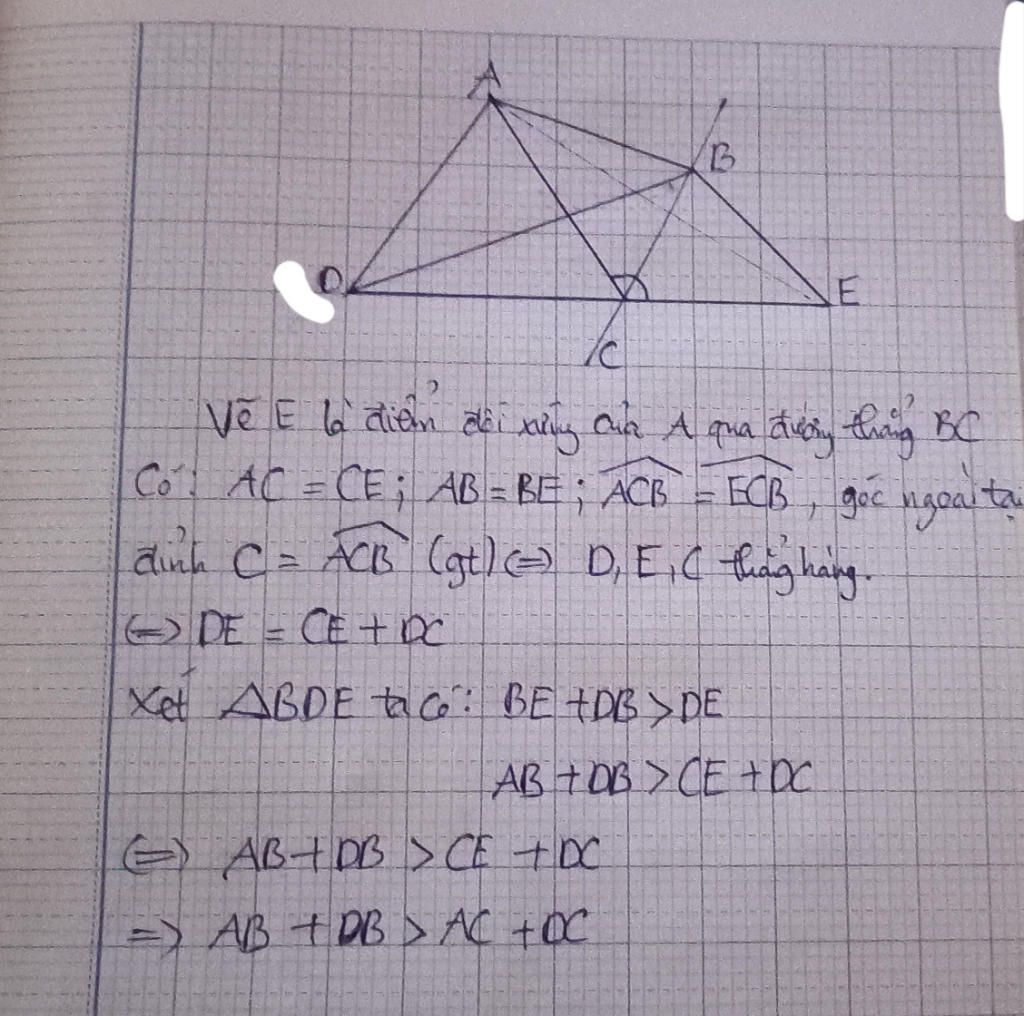 A
B
D
E
C
Vẽ E là điểm đối xứng của A qua đường thẳng BC
Có: AC = CE; AB = BE; \widehat{ACB} = \widehat{ECB}, góc ngoài tạ
đỉnh C = \widehat{ACB} (gt) ⇔ D, E, C thẳng hàng.
⇔ DE = CE + DC
Xét ΔBDE ta có: BE + DB > DE
AB + DB > CE + DC
⇔ AB + DB > CE + DC
⇒ AB + DB > AC + DC